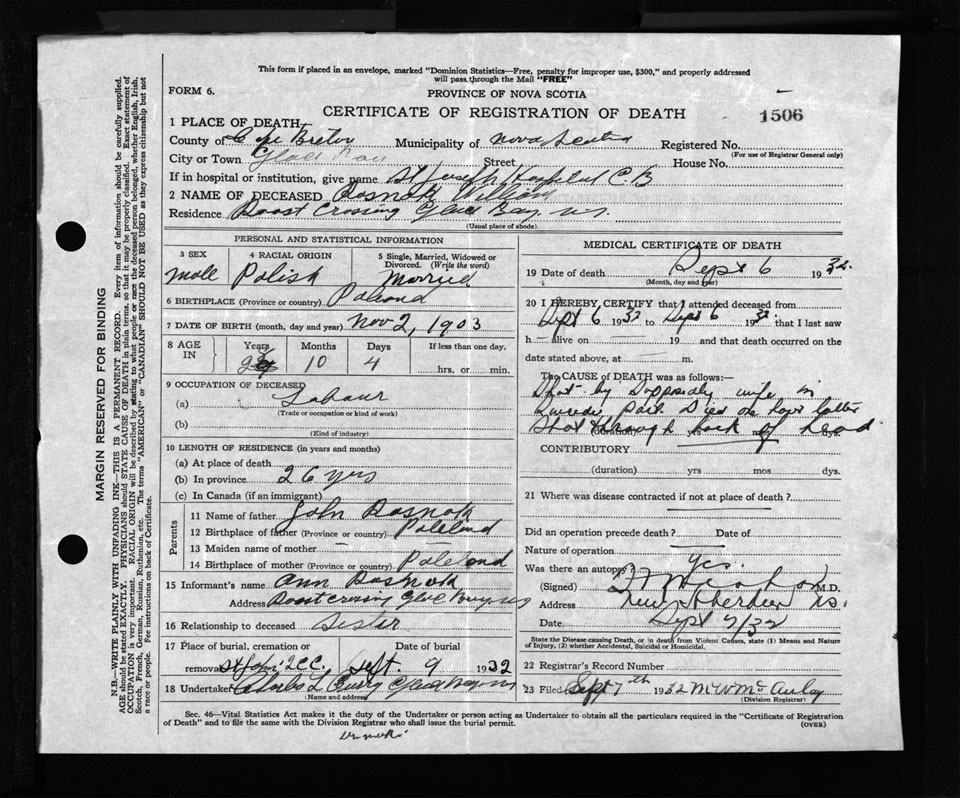 This form if placed in an envelope, marked "Dominion Statistics—Free, penalty for improper use, $300," and properly addressed
will pass through the Mail "FREE"
FORM 6.
PROVINCE OF NOVA SCOTIA
CERTIFICATE OF REGISTRATION OF DEATH
1506
1 PLACE OF DEATH
County of Cape Breton Municipality of Nova Scotia Registered No.
(For use of Registrar General only)
City or Town Glace Bay Street House No.
If in hospital or institution, give name St Joseph Hospital C.B
2 NAME OF DECEASED
Residence Crossing Glace Bay N.S.
(Usual place of abode)
PERSONAL AND STATISTICAL INFORMATION
3 SEX
male
4 RACIAL ORIGIN
Polish
5 Single, Married, Widowed or Divorced. (Write the word)
Married
6 BIRTHPLACE (Province or country) Poland
7 DATE OF BIRTH (month, day and year) Nov 2, 1903
8 AGE IN
Years Months Days If less than one day,
10 4 hrs. or min.
9 OCCUPATION OF DECEASED
(a) Labour
(Trade or occupation or kind of work)
(b)
(Kind of industry)
10 LENGTH OF RESIDENCE (in years and months)
(a) At place of death
(b) In province 26 yrs
(c) In Canada (if an immigrant)
Parents
11 Name of father John
12 Birthplace of father (Province or country) Poleland
13 Maiden name of mother —
14 Birthplace of mother (Province or country) Poleland
15 Informant's name Ann
Address Crossing Glace Bay NS
16 Relationship to deceased Sister
17 Place of burial, cremation or removal Date of burial
St John's Sept. 9 1932
18 Undertaker Charles L Curry Glace Bay NS
(Name and address)
MEDICAL CERTIFICATE OF DEATH
19 Date of death Sept 6 1932.
(Month, day and year)
20 I HEREBY, CERTIFY that I attended deceased from
Sept 6 1932 to Sept 6 1932 that I last saw
h— alive on — 19— and that death occurred on the
date stated above, at — m.
The CAUSE of DEATH was as follows:—
Shot by Supposedly wife in
Died one hour latter
Shot through back of head
(duration) yrs mos dys.
CONTRIBUTORY
(duration) yrs mos dys.
21 Where was disease contracted if not at place of death?
Did an operation precede death? Date of
Nature of operation
Was there an autopsy? Yes.
(Signed) M.D.
Address New Aberdeen NS.
Date, Sept 7/32
State the Disease causing Death, or in death from Violent Causes, state (1) Means and Nature of Injury, (2) whether Accidental, Suicidal or Homicidal.
22 Registrar's Record Number
23 Filed Sept 7th 1932 McAulay
(Division Registrar)
Sec. 46—Vital Statistics Act makes it the duty of the Undertaker or person acting as Undertaker to obtain all the particulars required in the "Certificate of Registration
of Death" and to file the same with the Division Registrar who shall issue the burial permit.
(OVER)
MARGIN RESERVED FOR BINDING
N.B.—WRITE PLAINLY WITH UNFADING INK—THIS IS A PERMANENT RECORD. Every item of information should be carefully supplied.
AGE should be stated EXACTLY. PHYSICIANS should STATE CAUSE OF DEATH in plain terms, so that it may be properly classified. Exact statement of
OCCUPATION is very important. RACIAL ORIGIN will be described by stating to what people or race the deceased person belonged, whether English, Irish,
Scotch, French, German, Russian, Ruthenian, etc. The terms "AMERICAN" or "CANADIAN" SHOULD NOT BE USED as they express citizenship but not
a race or people. Fee instructions on back of Certificate.